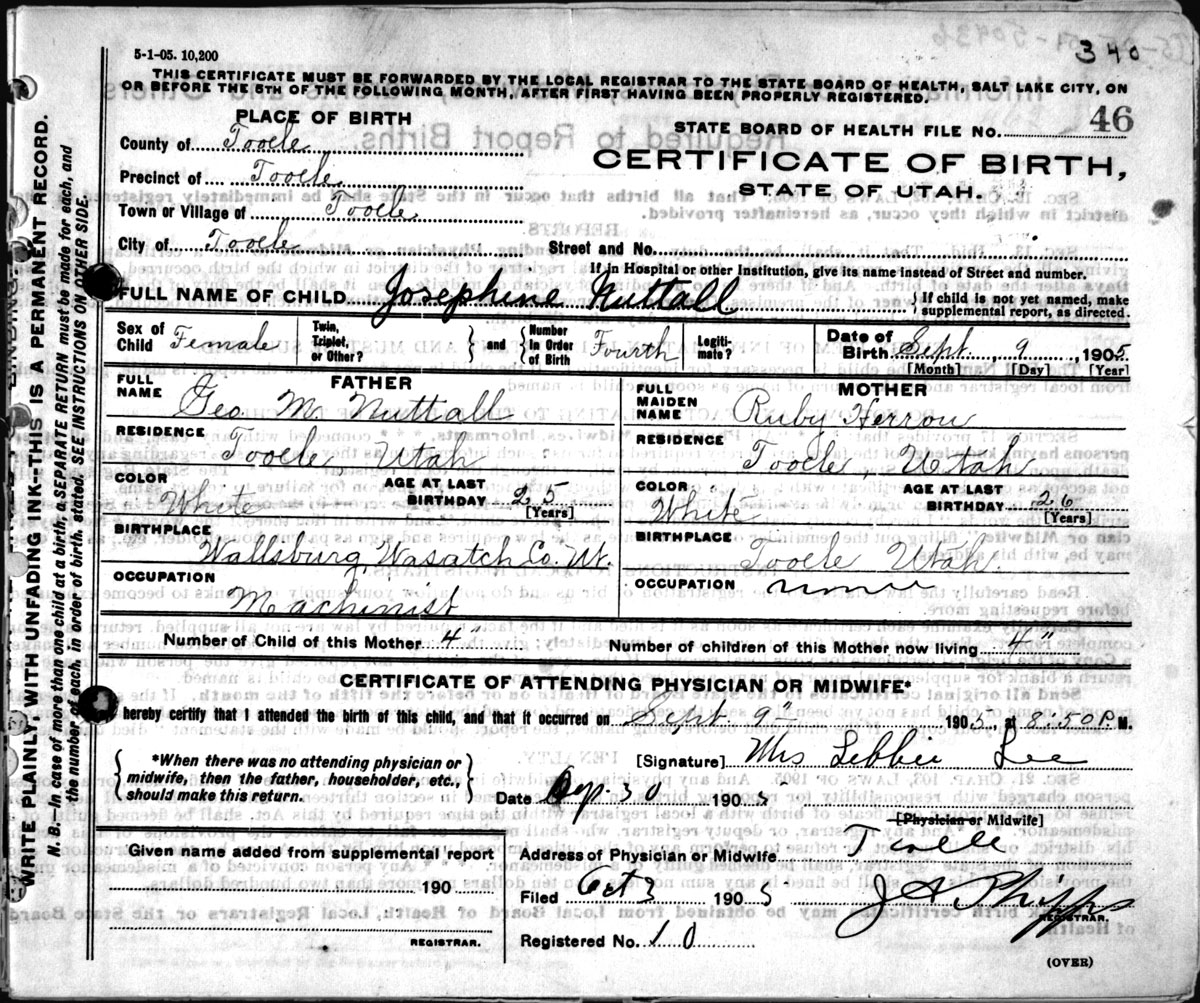 340
5-1-05. 10,200
THIS CERTIFICATE MUST BE FORWARDED BY THE LOCAL REGISTRAR TO THE STATE BOARD OF HEALTH, SALT LAKE CITY, ON
OR BEFORE THE 5TH OF THE FOLLOWING MONTH, AFTER FIRST HAVING BEEN PROPERLY REGISTERED.
WRITE PLAINLY, WITH UNFADING INK--THIS IS A PERMANENT RECORD.
N. B.--In case of more than one child at a birth, a SEPARATE RETURN must be made for each, and
the number of each, in order of birth, stated. SEE INSTRUCTIONS ON OTHER SIDE.
PLACE OF BIRTH
STATE BOARD OF HEALTH FILE NO. 46
County of Tooele
CERTIFICATE OF BIRTH,
Precinct of Tooele
STATE OF UTAH.
Town or Village of Tooele
City of Tooele Street and No.
If in Hospital or other Institution, give its name instead of Street and number.
FULL NAME OF CHILD Josephine Nuttall { If child is not yet named, make
supplemental report, as directed.
Sex of Child Female Twin, Triplet, or Other? } and { Number in Order of Birth Fourth Legiti-mate? Date of Birth Sept. 9, 1905
[Month] [Day] [Year]
FATHER MOTHER
FULL NAME Geo M. Nuttall FULL MAIDEN NAME Ruby Herron
RESIDENCE Tooele, Utah RESIDENCE Tooele, Utah
COLOR White AGE AT LAST BIRTHDAY 25 [Years] COLOR White AGE AT LAST BIRTHDAY 26 [Years]
BIRTHPLACE Wallsburg, Wasatch Co. Ut. BIRTHPLACE Tooele Utah.
OCCUPATION Machinist OCCUPATION none
Number of Child of this Mother 4" Number of children of this Mother now living 4"
CERTIFICATE OF ATTENDING PHYSICIAN OR MIDWIFE*
hereby certify that I attended the birth of this child, and that it occurred on Sept 9" 1905, at 8:50 P. M.
{ *When there was no attending physician or
midwife, then the father, householder, etc.,
should make this return. }
[Signature] Mrs Lebbie Lee
Date Sep. 30 1905
[Physician or Midwife]
Given name added from supplemental report
190
REGISTRAR.
Address of Physician or Midwife Tooele
Filed Oct 3 1905 J A Phipps
REGISTRAR.
Registered No. 10
(OVER)